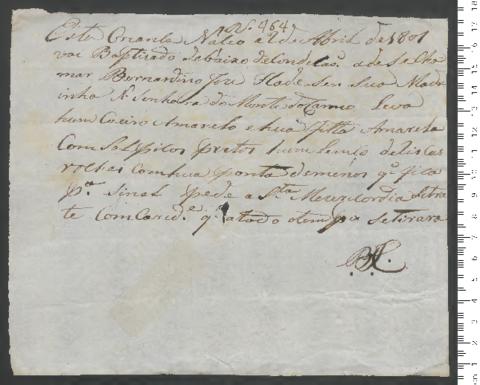 N. 464
Este Criansa Naseo a 2 de Abril de 1801
vai Baptizado debaixo de Condisaõ. a de se cha
mar Bernardino Joze Hade ser sua Mad
rinha N. Senhora do Monte do Carmo leva
hum Coeiro Amarelo e hua fitta Amarela
Com Salpicos pretos hum lenso de liscas
rochas com hua ponta de menos q. fica
p.a sinal pede a S.ta Mezericordia se tra
te com Carid.e q. a todo o tempo se tirara